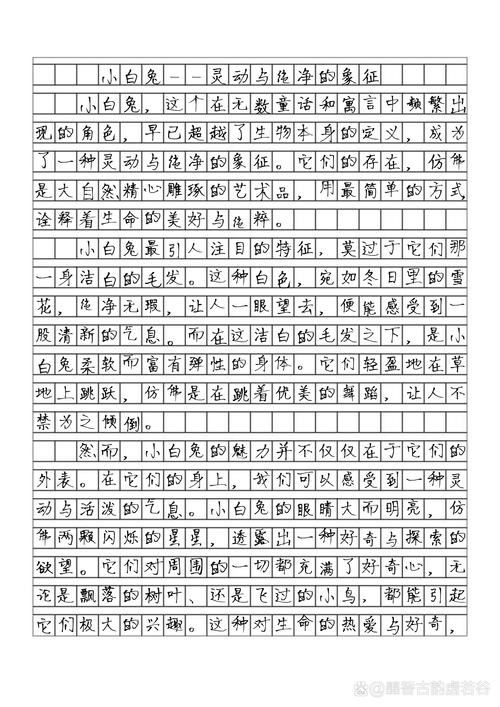 小白兔——灵动与纯净的象征
小白兔，这个在无数童话和寓言中频繁出
现的角色，早已超越了生物本身的定义，成为
了一种灵动与纯净的象征。它们的存在，仿佛
是大自然精心雕琢的艺术品，用最简单的方式
诠释着生命的美好与纯粹。
小白兔最引人注目的特征，莫过于它们那
一身洁白的毛发。这种白色，宛如冬日里的雪
花，纯净无瑕，让人一眼望去，便能感受到一
股清新的气息。而在这洁白的毛发之下，是小
白兔柔软而富有弹性的身体。它们轻盈地在草
地上跳跃，仿佛是在跳着优美的舞蹈，让人不
禁为之倾倒。
然而，小白兔的魅力并不仅仅在于它们的
外表。在它们的身上，我们可以感受到一种灵
动与活泼的气息。小白兔的眼睛大而明亮，仿
佛两颗闪烁的星星，透露出一种好奇与探索的
欲望。它们对周围的一切都充满了好奇心，无
论是飘落的树叶、还是飞过的小鸟，都能引起
它们极大的兴趣。这种对生命的热爱与好奇，